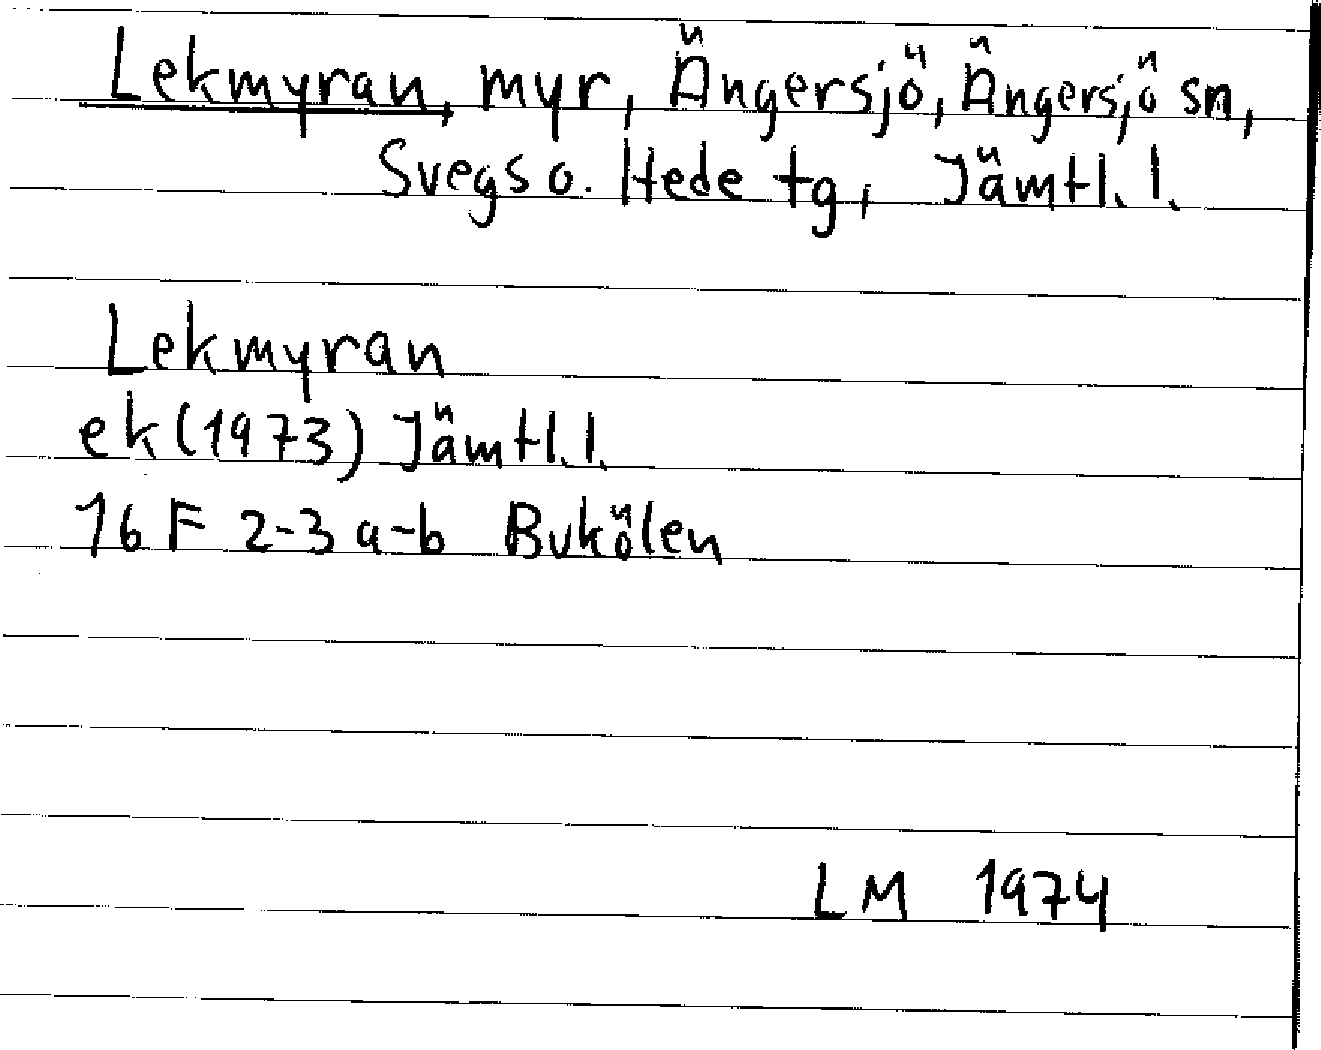 Lekmyran, myr, Ängersjö, Ängersjö sn,
Svegs o. Hede tg, Jämtl. l.
Lekmyran
ek (1973) Jämtl. l.
16 F 2-3 a-b Bukölen
LM 1974